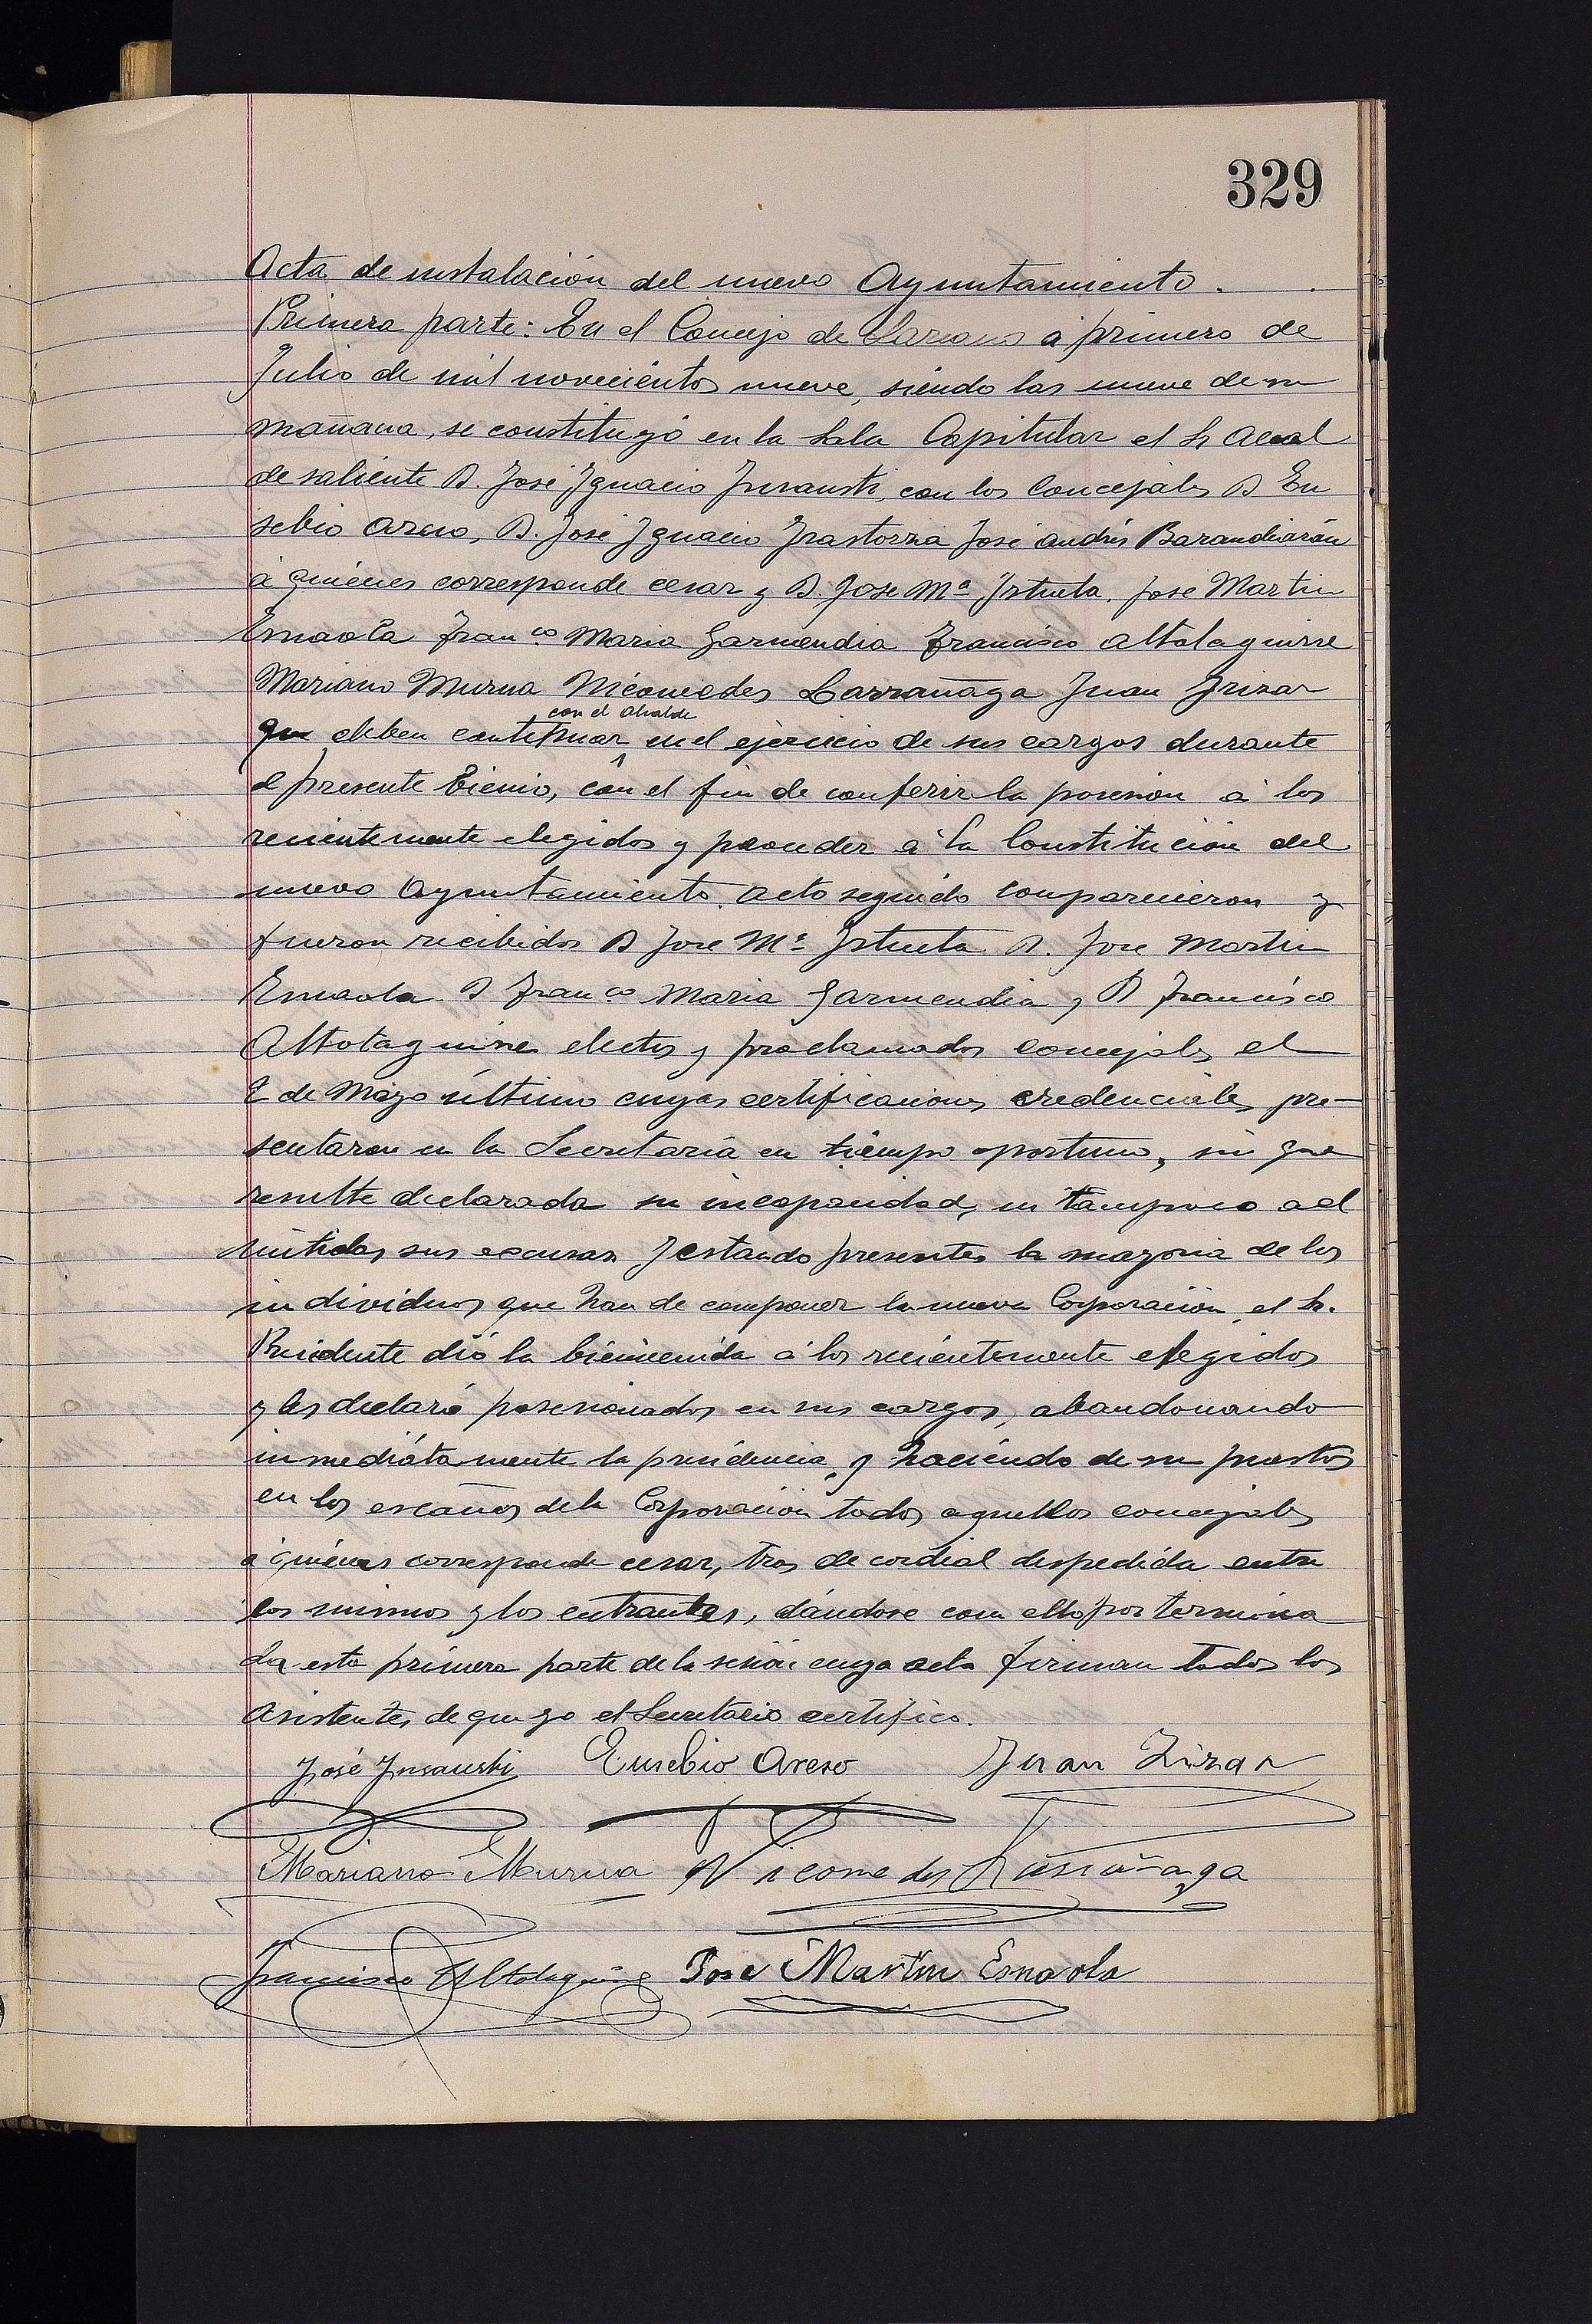 329
Acta de instalación del nuevo Ayuntamiento.
Primera parte: En el Concejo de Lazcano á primero de
Julio de mil novecientos nueve, siendo las nueve de su
mañana, se constituyó en la Sala Capitular el Sr Alcal
de saliente D. José Ignacio Insausti, con los Concejales D Eu
sebio Areso, D. José Ignacio Irastorza José Andrés Barandiarán
á quienes corresponde cesar y D. José Mª Iztueta. José Martin
Esnaola Franco Maria Garmendia Francisco Altolaguirre
Mariano Murua Nicomedes Larrañaga Juan Irizar
con el Alcalde
que deben continuar en el ejercicio de sus cargos durante
el presente bienio, con el fin de conferir la posesión á los
recientemente elegidos y proceder á la Constitución del
nuevo Ayuntamiento. Acto seguido comparecieron y
fueron recibidos D José Mª Iztueta D. José Martin
Esnaola D Franco Maria Garmendia y D Francisco
Altolaguirre electos y proclamados concejales el
2 de Mayo último cuyas certificaciones credenciales pre-
sentaron en la Secretaría en tiempo oportuno, sin que
resulte declarada su incapacidad, ni tampoco ad
mitidas sus excusas. Y estando presentes la mayoria de los
individuos que han de componer la nueva Corporación, el Sr.
Presidente dió la bienvenida á los recientemente elegidos
y les declaró posesionados en sus cargos, abandonando
inmediatamente la presidencia, y haciendo de su puestos
en los escaños de la Corporación todos aquellos concejales
á quienes corresponde cesar, tras de cordial despedida entre
los mismos y los entrantes, dándose con ello por termina
da esta primera parte de la sesión cuya acta firman todos los
asistentes, de que yo el Secretario certifico.
José Insausti Eusebio Areso Juan Irizar
Mariano Murua Nicomedes Larrañaga
Francisco Altolaguirre José Martin Esnaola